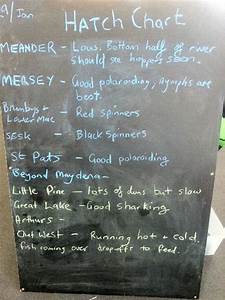 9/Jan HATCH CHART
MEANDER - Low. Bottom half of river
should see hoppers soon.
MERSEY - Good polaroiding, Nymphs are
best.
Brumbys + Lower Mac - Red Spinners
ESK - Black Spinners
St Pats - Good polaroiding
Beyond Maydena -
Little Pine - lots of duns but slow
Great Lake - Good sharking
Arthurs -
Out West - Running hot + cold.
fish roming over drop offs to feed.